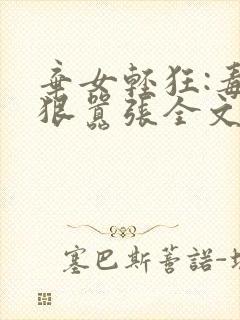 棄女輕狂:毒
狠囂張全文
塞巴斯蒂諾-埃